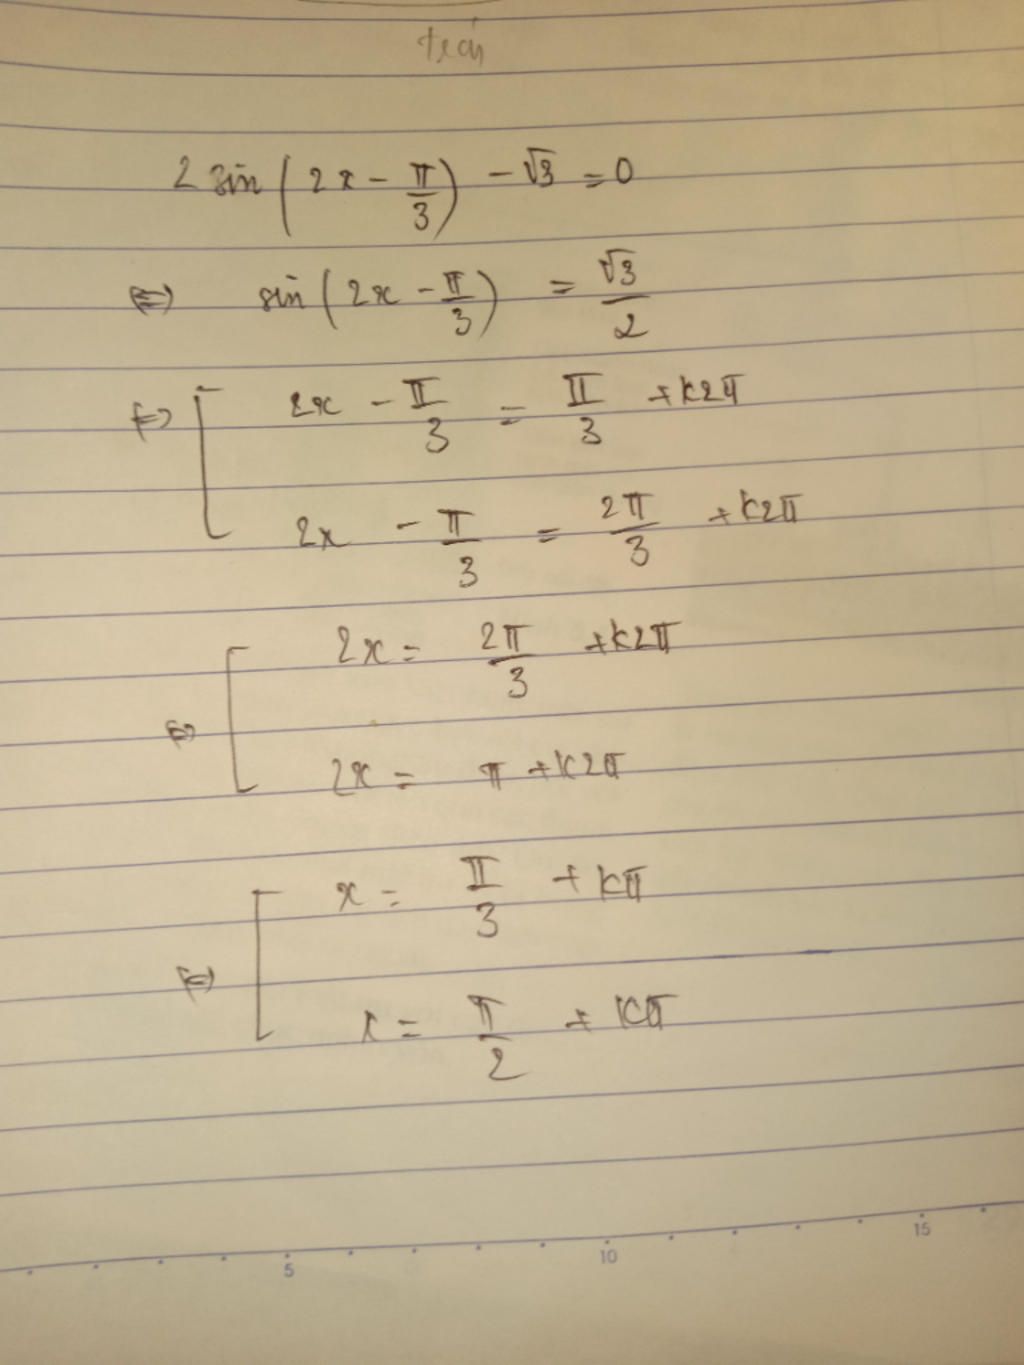 2 sin(2x - π/3) - √3 = 0
⇔ sin(2x - π/3) = √3/2
⇔ [ 2x - π/3 = π/3 + k2π
2x - π/3 = 2π/3 + k2π
⇔ [ 2x = 2π/3 + k2π
2x = π + k2π
⇔ [ x = π/3 + kπ
x = π/2 + kπ
5 10 15